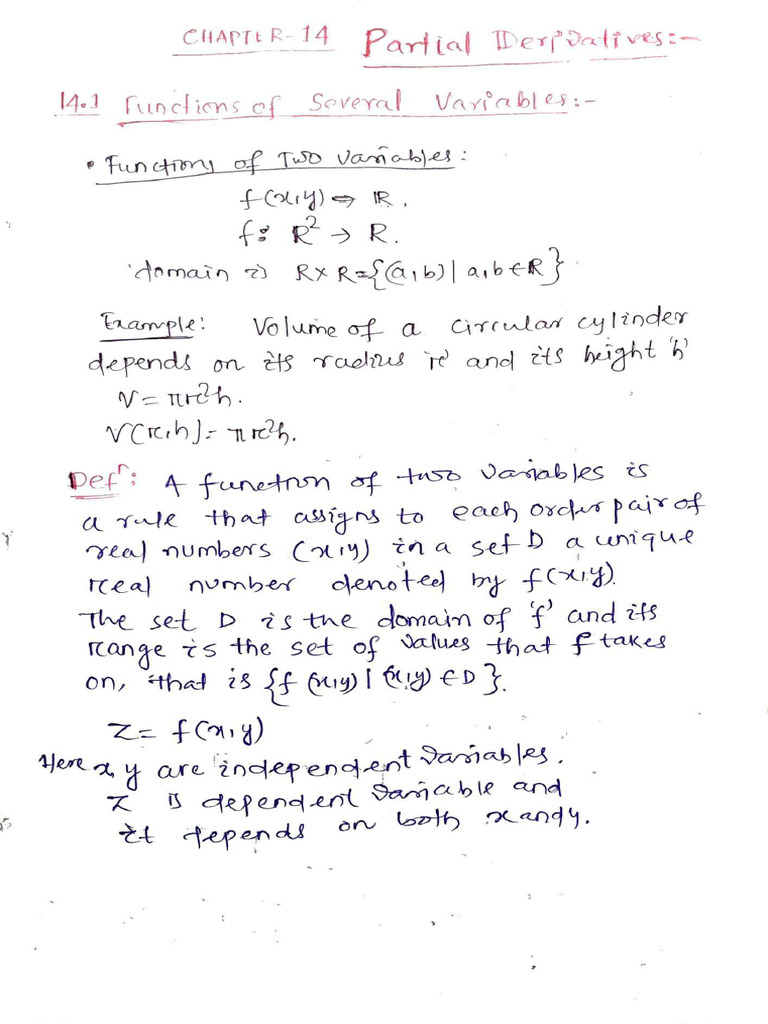 CHAPTER-14 Partial Derivatives:-
14.1 Functions of Several Variables:-
• Functions of Two Variables:
f(x,y) ⇔ R.
f: R² → R.
domain is R×R={(a,b)| a,b∈R}
Example: Volume of a circular cylinder
depends on its radius 'r' and its height 'h'
V = πr²h.
V(r,h) = πr²h.
Defⁿ: A function of two variables is
a rule that assigns to each order pair of
real numbers (x,y) in a set D a unique
real number denoted by f(x,y).
The set D is the domain of 'f' and its
range is the set of values that f takes
on, that is {f(x,y)| (x,y) ∈ D}.
Z = f(x,y)
Here x, y are independent variables.
Z is dependent variable and
it depends on both x and y.